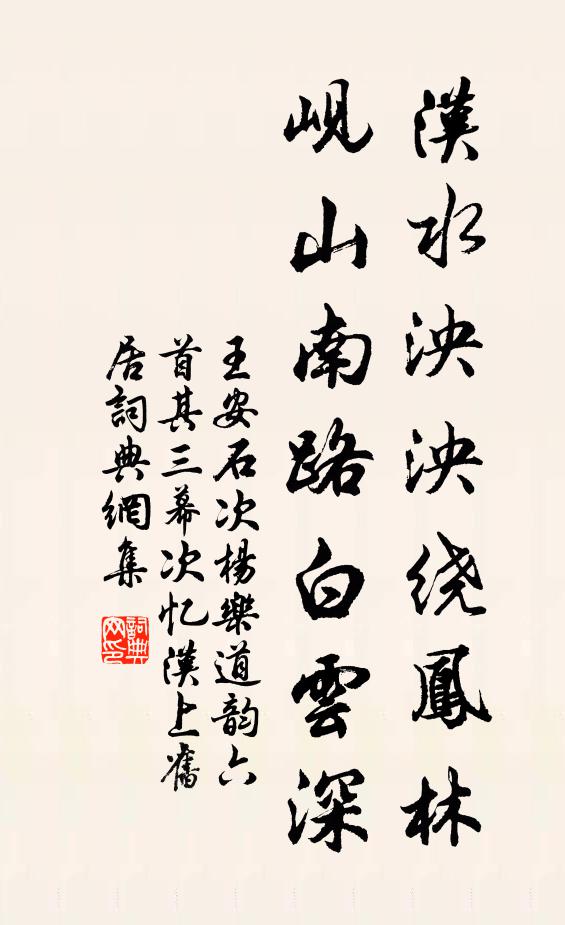 漢水泱泱绕鳳林
峴山南路白雲深
王安石次楊樂道韵六
首其三幕次忆漢上舊
居詞典網集
詞典
网印